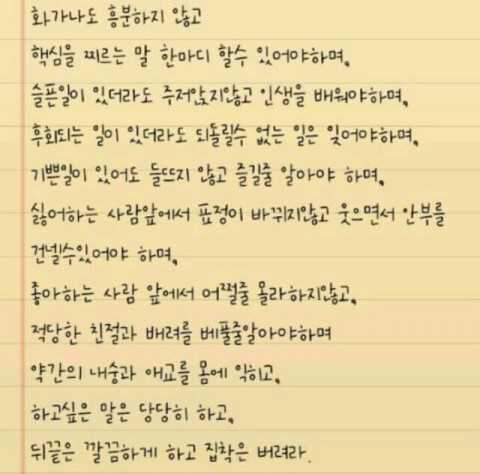 화가나도 흥분하지 않고
핵심을 찌르는 말 한마디 할수 있어야하며,
슬픈일이 있더라도 주저앉지않고 인생을 배워야하며,
후회되는 일이 있더라도 되돌릴수 없는 일은 잊어야하며,
기쁜일이 있어도 들뜨지 않고 즐길줄 알아야 하며,
싫어하는 사람앞에서 표정이 바뀌지않고 웃으면서 안부를
건넬수있어야 하며,
좋아하는 사람 앞에서 어쩔줄 몰라하지않고,
적당한 친절과 배려를 베풀줄알아야하며
약간의 내숭과 애교를 몸에 익히고,
하고싶은 말은 당당히 하고,
뒤끝은 깔끔하게 하고 집착은 버려라.